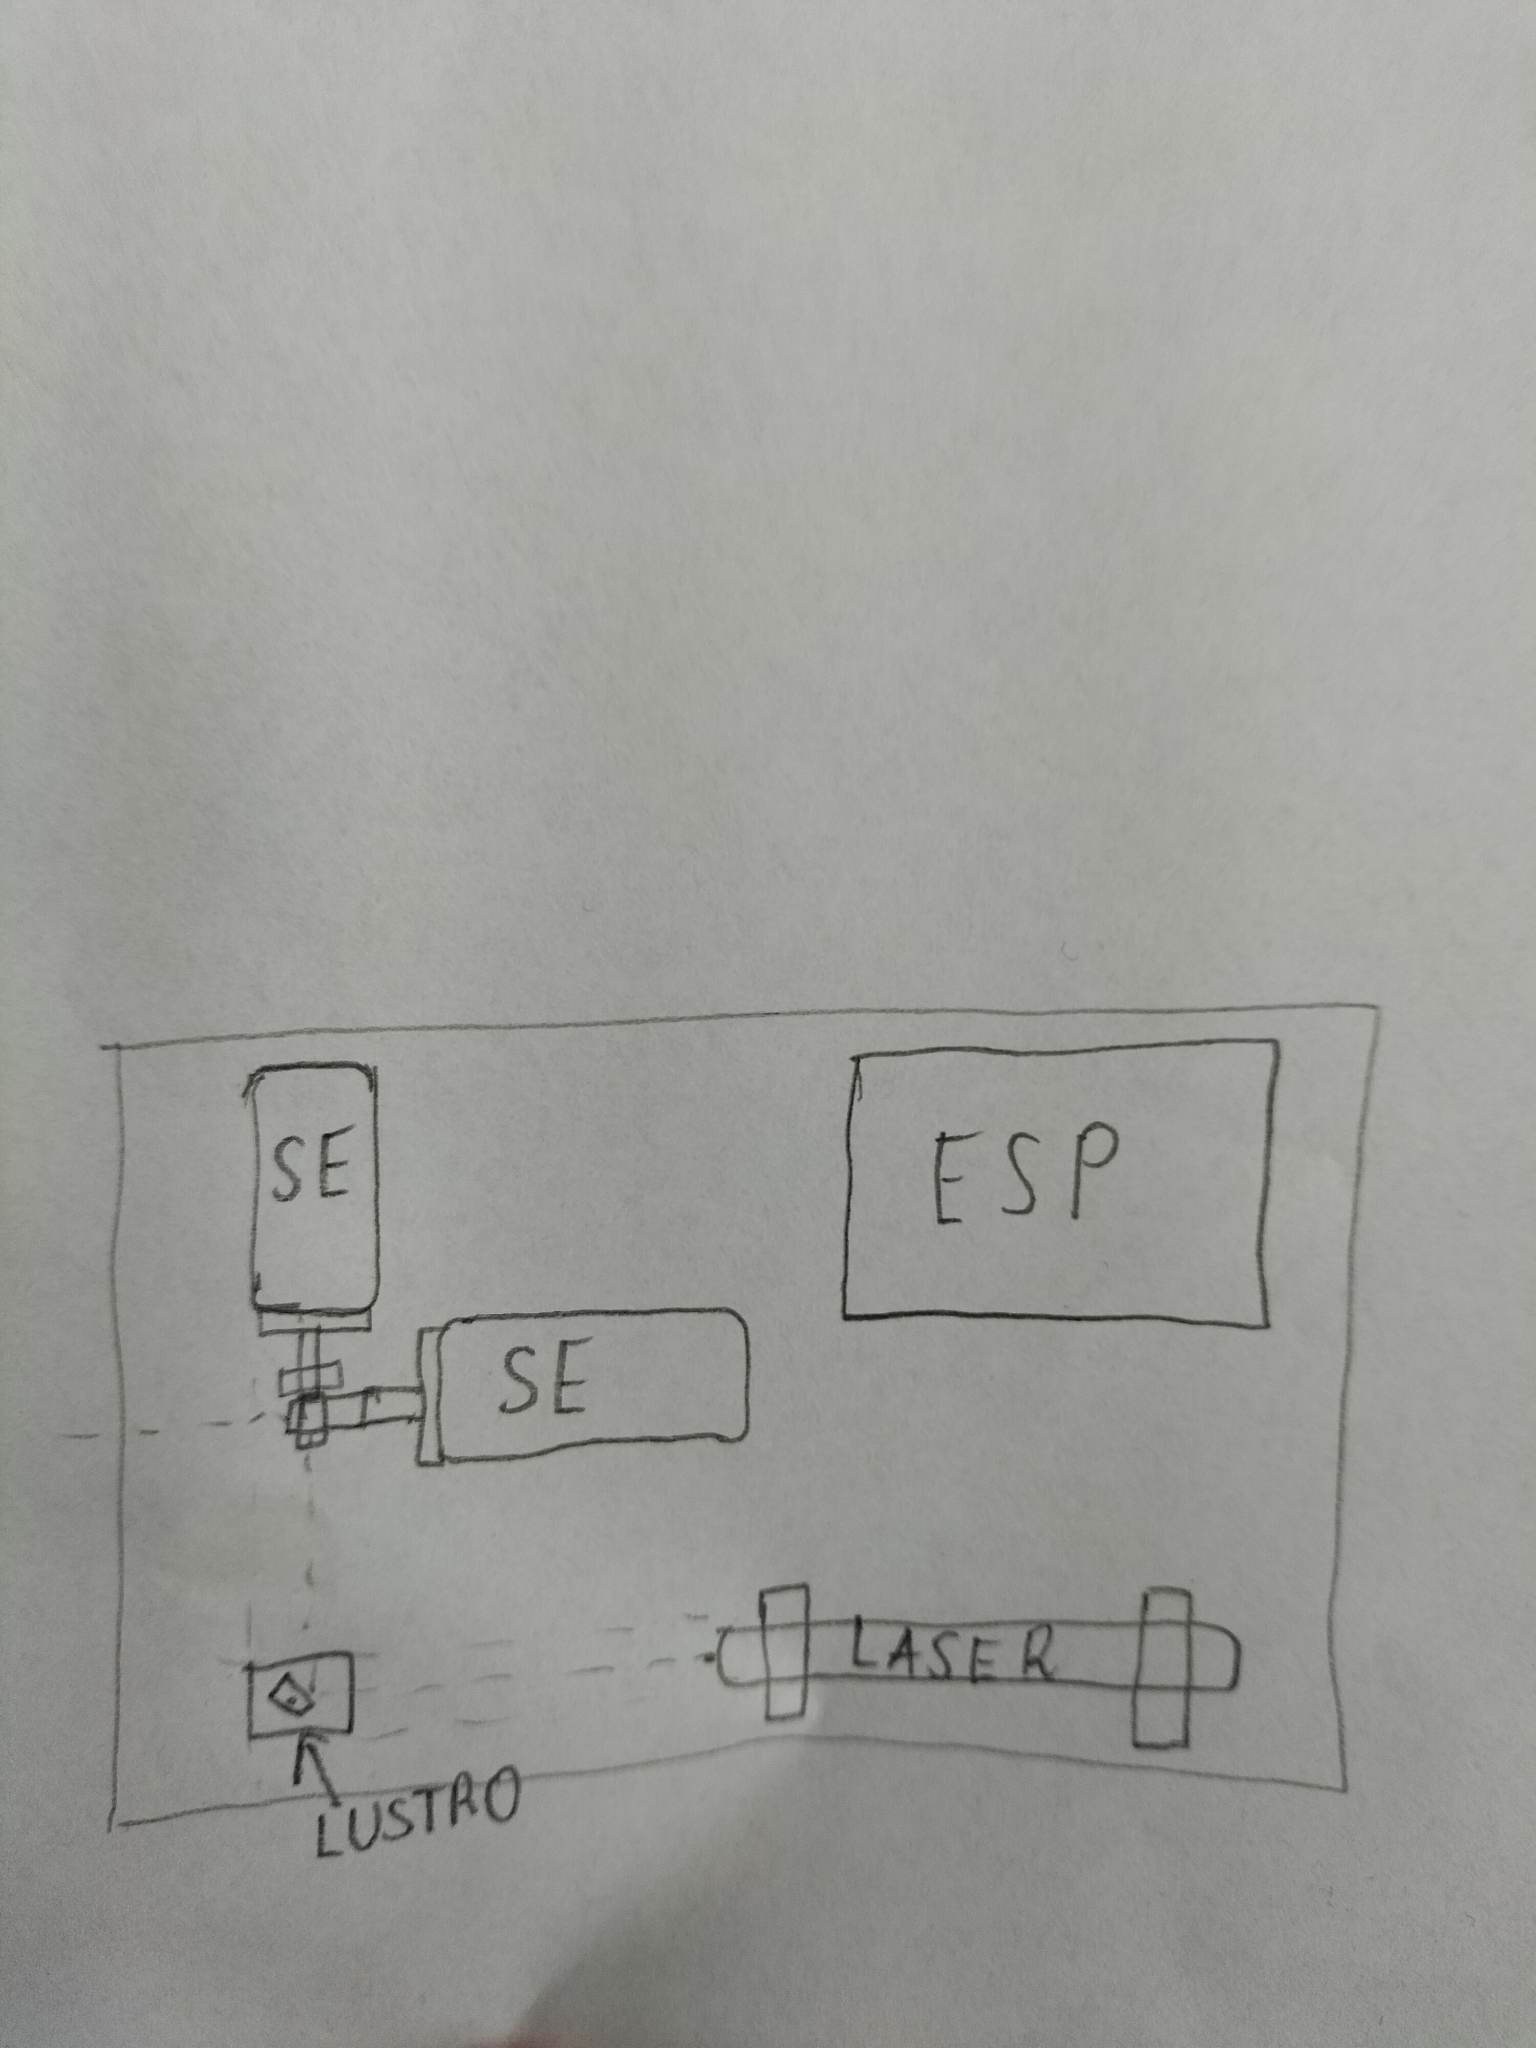 SE
ESP
SE
LASER
LUSTRO